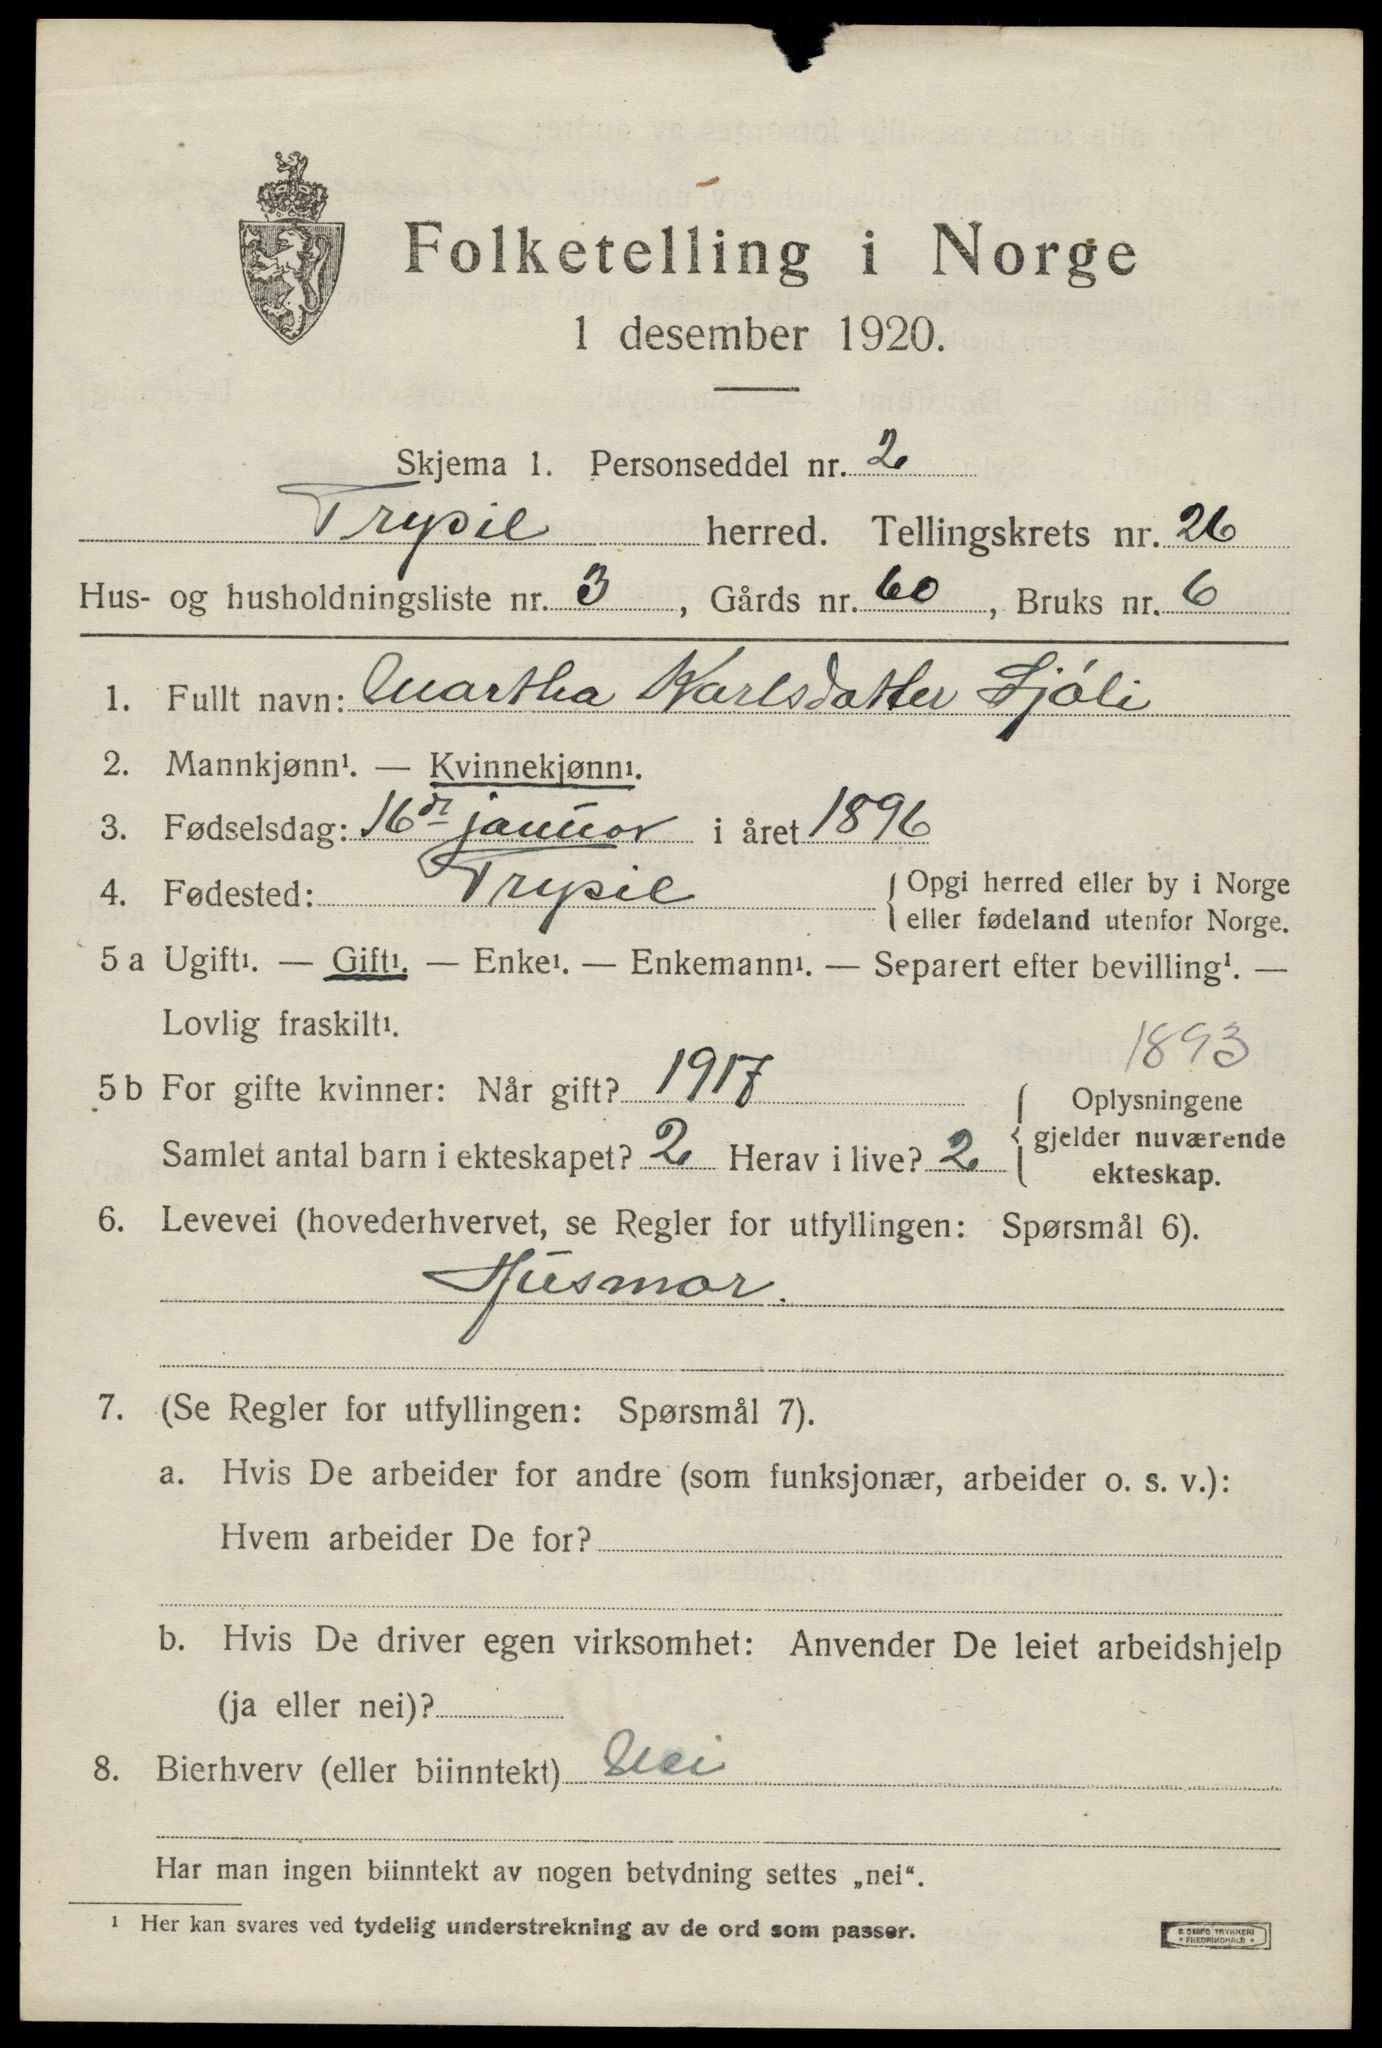 Folketelling i Norge
1 desember 1920.
Skjema 1. Personseddel nr. 2
Trysil herred. Tellingskrets nr. 26
Hus- og husholdningsliste nr. 3, Gårds nr. 60, Bruks nr. 6
1. Fullt navn: Martha Karlsdatter Sjøli
2. Mannkjønn¹. — Kvinnekjønn¹.
3. Fødselsdag: 16de januar i året 1896
4. Fødested: Trysil { Opgi herred eller by i Norge
eller fødeland utenfor Norge.
5 a Ugift¹. — Gift¹. — Enke¹. — Enkemann¹. — Separert efter bevilling¹. —
Lovlig fraskilt¹.
1893
5 b For gifte kvinner: Når gift? 1917
Samlet antal barn i ekteskapet? 2 Herav i live? 2
{ Oplysningene
gjelder nuværende
ekteskap.
6. Levevei (hovederhvervet, se Regler for utfyllingen: Spørsmål 6).
Husmor.
7. (Se Regler for utfyllingen: Spørsmål 7).
a. Hvis De arbeider for andre (som funksjonær, arbeider o. s. v.):
Hvem arbeider De for?
b. Hvis De driver egen virksomhet: Anvender De leiet arbeidshjelp
(ja eller nei)?
8. Bierhverv (eller biinntekt) Nei
Har man ingen biinntekt av nogen betydning settes „nei“.
¹ Her kan svares ved tydelig understrekning av de ord som passer.
TRYKKERI
* FREDRIKSHALD *